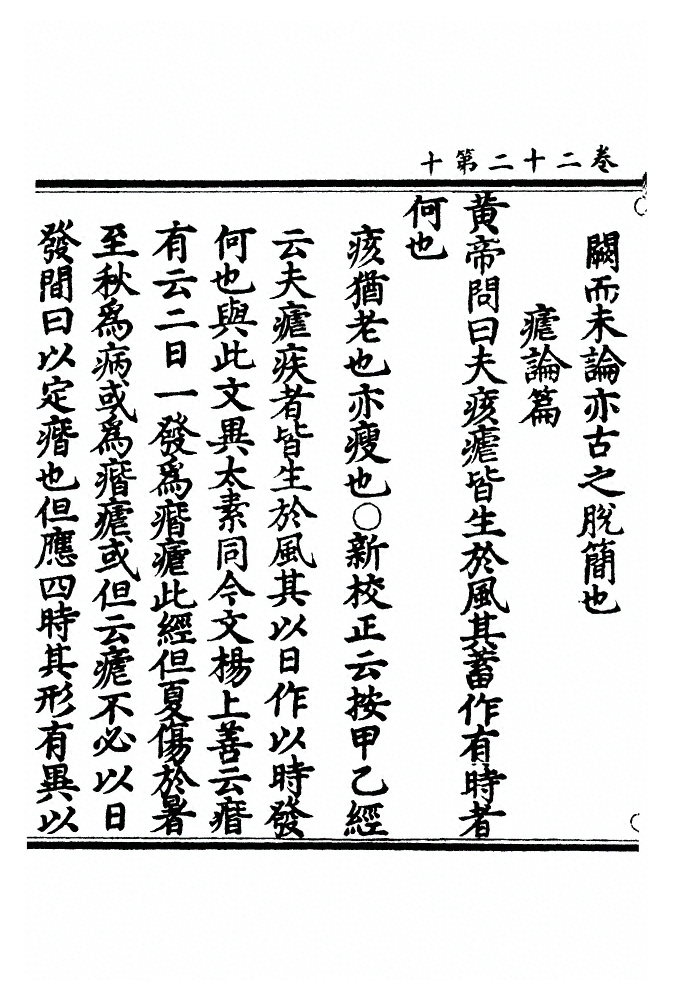 卷二十二第十
闕而未論亦古之脫簡也
瘧論篇
黃帝問曰夫痎瘧皆生於風其蓄作有時者
何也
痎猶老也亦瘦也○新校正云按甲乙經
云夫瘧疾者皆生於風其以日作以時發
何也與此文異太素同今文楊上善云㾬
有云二日一發爲㾬瘧此經但夏傷於暑
至秋爲病或爲㾬瘧或但云瘧不必以日
發間日以定㾬也但應四時其形有異以